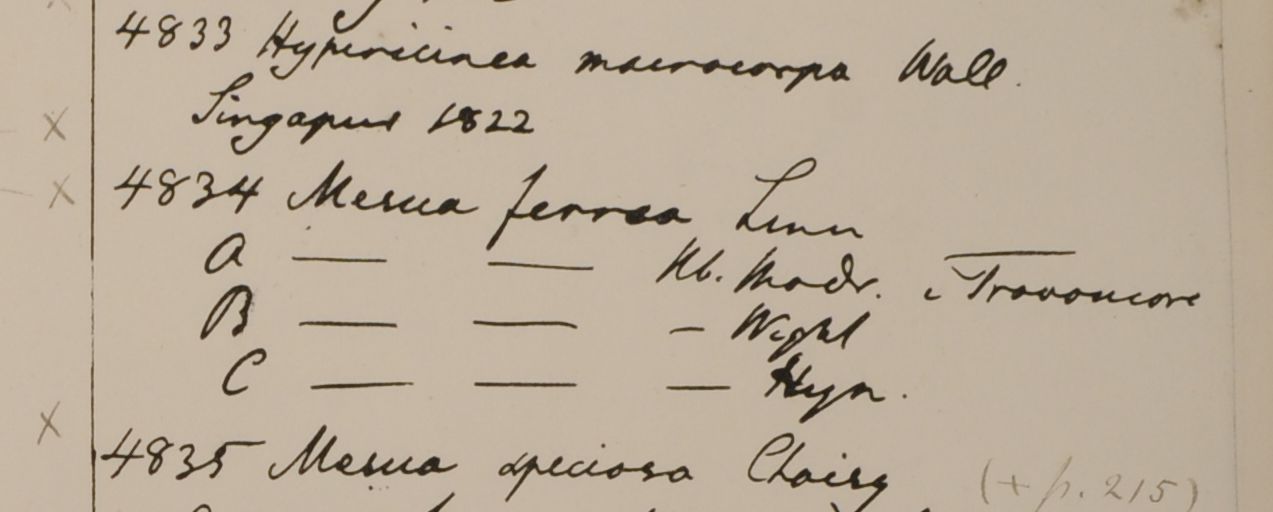 4833 Hypericinea macrocarpa Wall.
x Singapur 1822
x 4834 Mesua ferrea Linn
A — — Hb. Madr. e Travancore
B — — — Wight
C — — — Heyn.
x
4835 Mesua speciosa Choisy (+ p. 215)